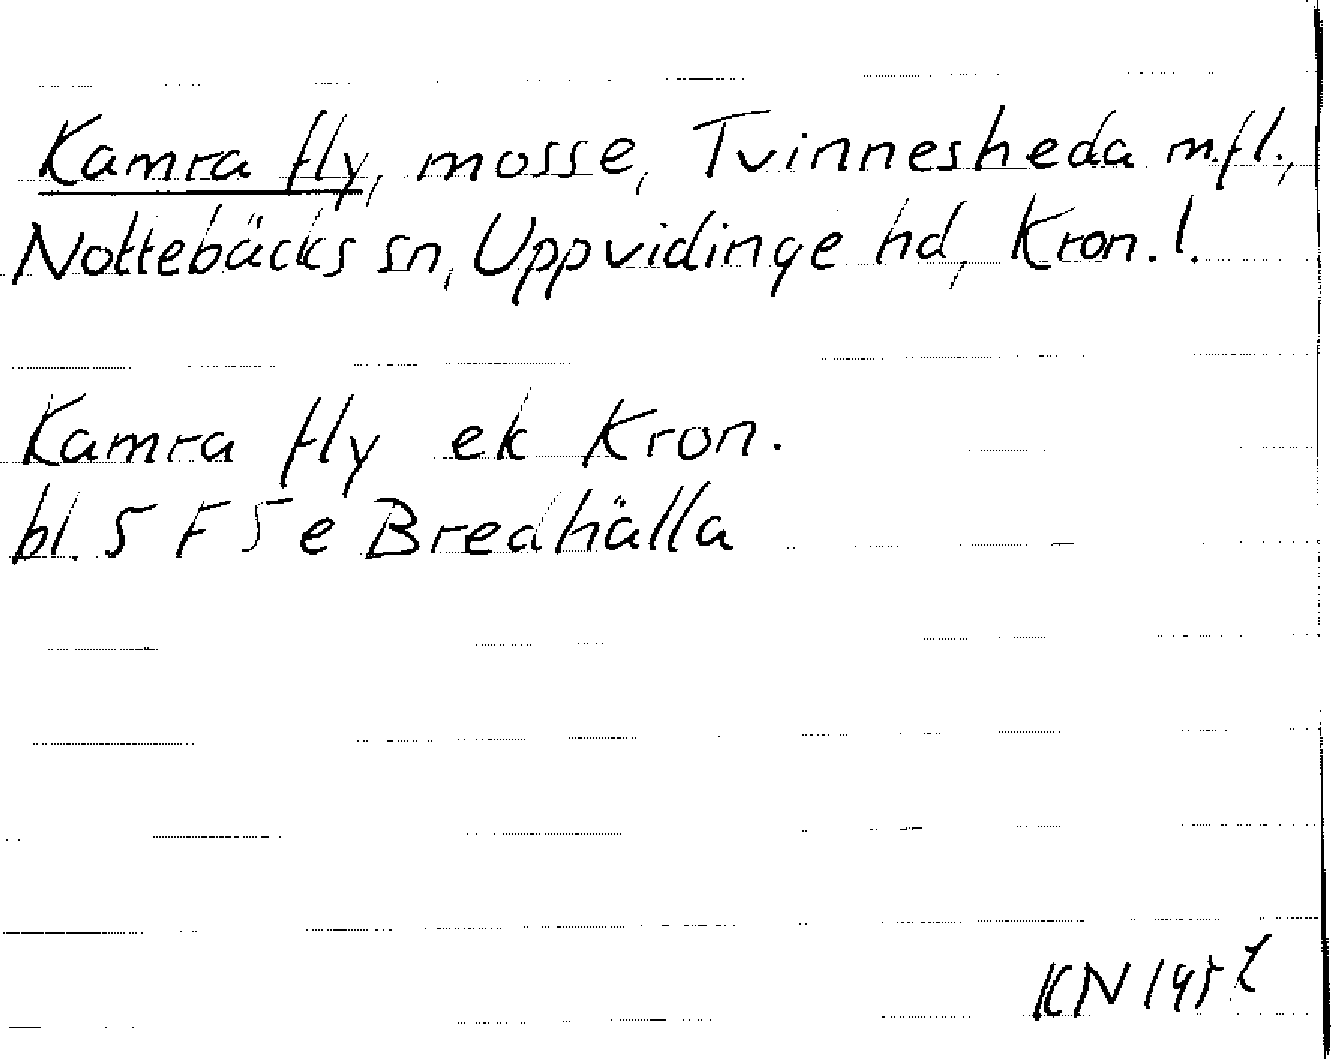 Kamra fly, mosse, Tvinnesheda m.fl.,
Nottebäcks sn, Uppvidinge hd, Kron. l.
Kamra fly ek Kron.
bl. 5 F 5 e Bredhälla
KN